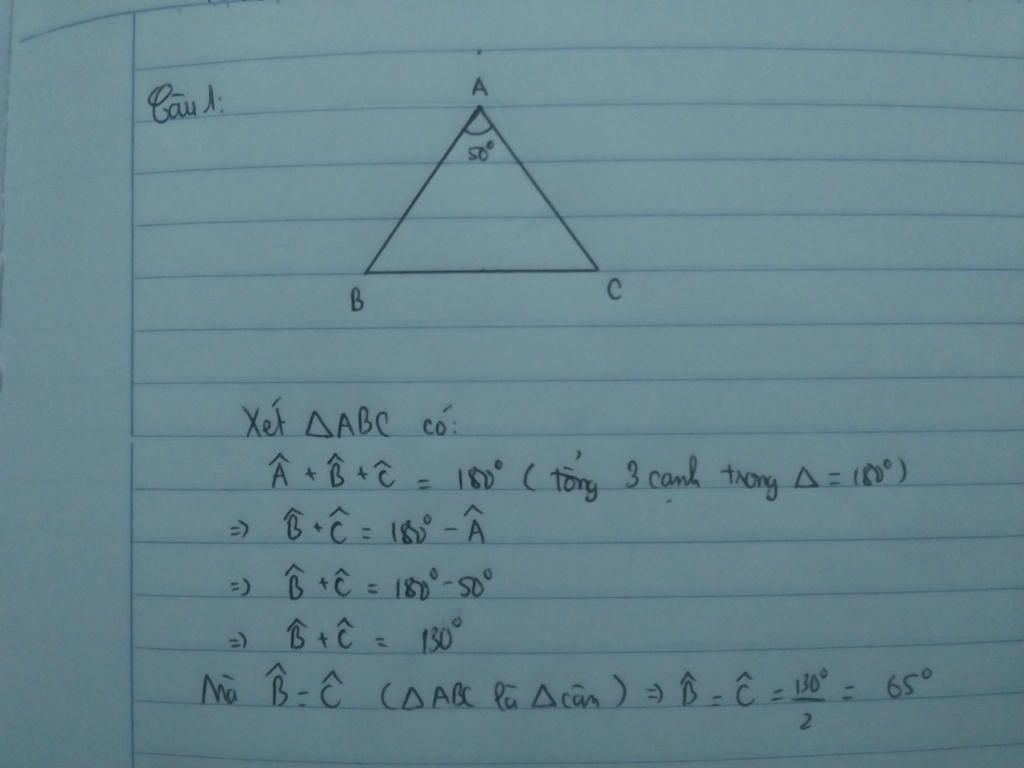 Câu 1:
A
50°
B
C
Xét ΔABC có:
Â + B̂ + Ĉ = 180° ( tổng 3 cạnh trong Δ = 180°)
=> B̂ + Ĉ = 180° - Â
=> B̂ + Ĉ = 180° - 50°
=> B̂ + Ĉ = 130°
Mà B̂ = Ĉ (ΔABC là Δcân) => B̂ = Ĉ = 130°/2 = 65°